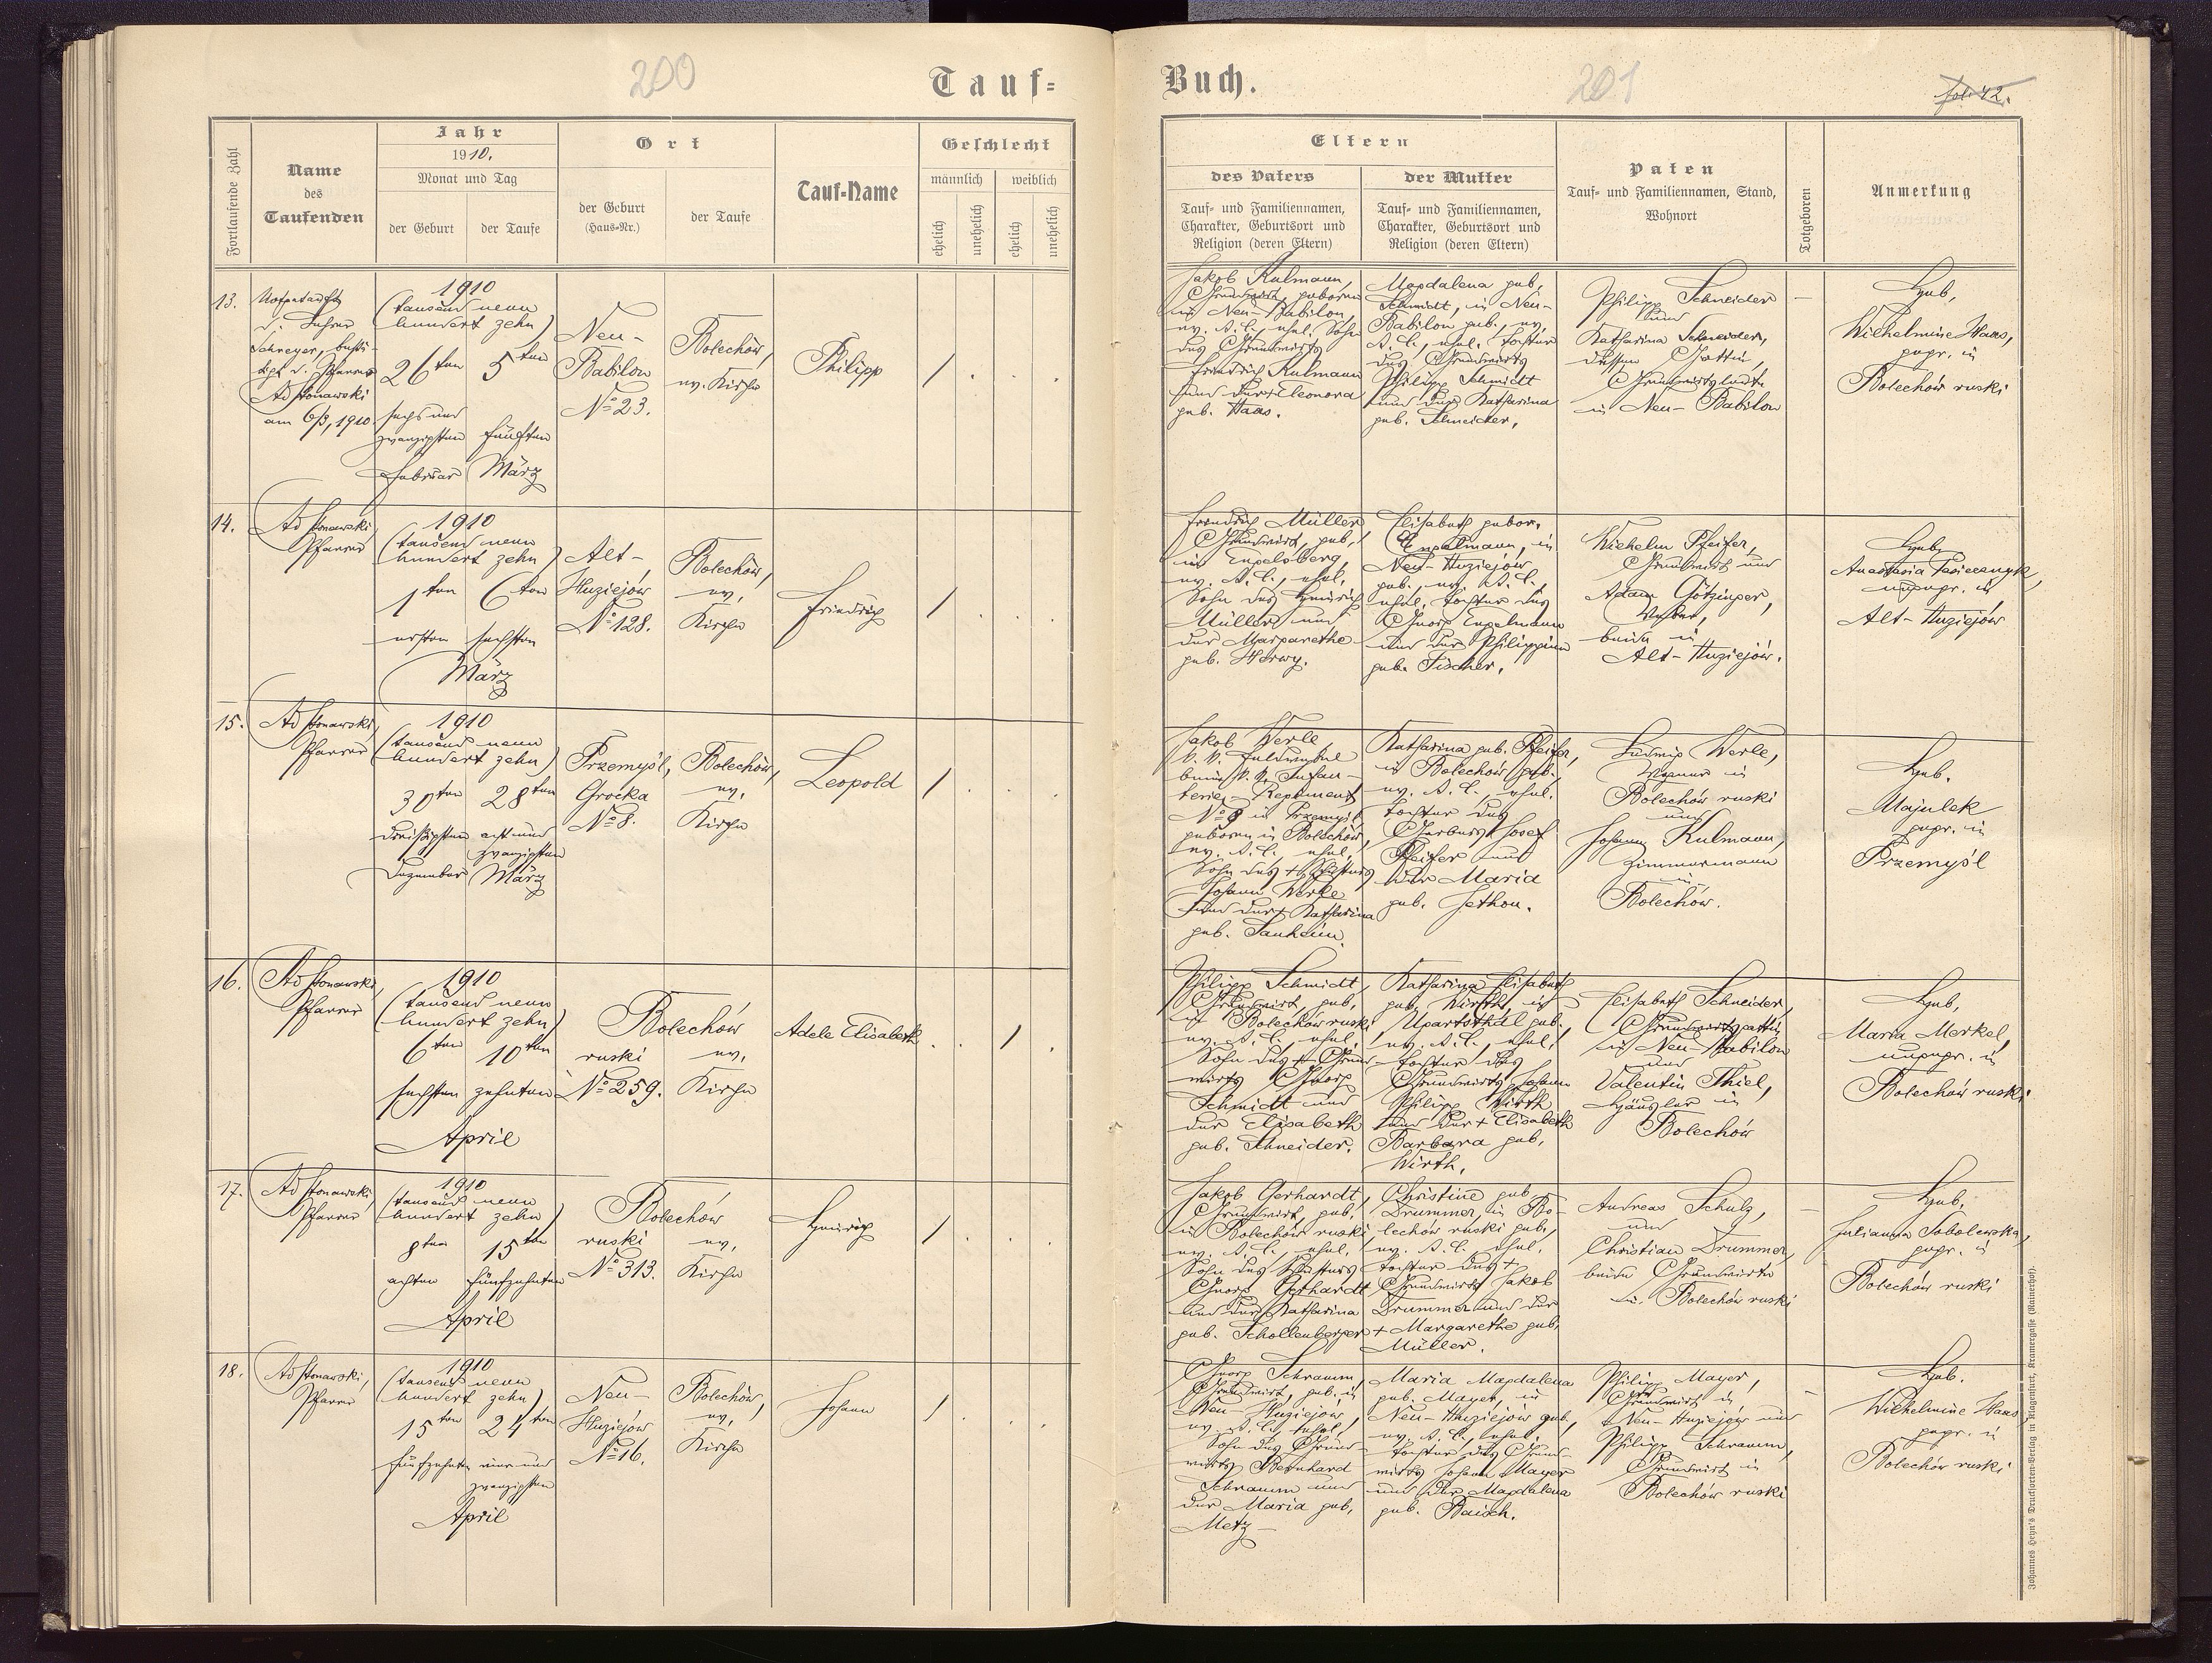 200
Tauf=
Fortlaufende Zahl
Name
des
Taufenden
Jahr
1910.
Monat und Tag
der Geburt
der Taufe
Ort
der Geburt
(Haus=Nr.)
der Taufe
Tauf=Name
Geschlecht
männlich
weiblich
ehelich
unehelich
ehelich
unehelich
13.
Notgetauft
v. Lehrer
Schreyer, bestä-
tigt v. Pfarrer
Ad Stonawski
am 6/3, 1910.
1910
(tausend neun
hundert zehn)
26ten 5ten
sechs und
zwanzigsten fünften
Februar März
Neu-
Babilon
No 23.
Bolechów,
ev. Kirche
Philipp
1 . . .
14.
Ad Stonawski,
Pfarrer
1910
(tausend neun
hundert zehn)
1ten 6ten
ersten sechsten
März
Alt-
Huziejów
No 128.
Bolechów,
ev.
Kirche
Friedrich
1 . . .
15.
Ad Stonawski,
Pfarrer
1910
(tausend neun
hundert zehn)
30ten 28ten
dreißigsten acht und
zwanzigsten
Dezember März
Przemyśl,
Grocka
No 8.
Bolechów,
ev.
Kirche
Leopold
1 . . .
16.
Ad Stonawski,
Pfarrer
1910
(tausend neun
hundert zehn)
6ten 10ten
sechsten zehnten
April
Bolechów
ruski ev.
No 259. Kirche
Adele Elisabeth
. . 1 .
17.
Ad Stonawski,
Pfarrer
1910
(tausend neun
hundert zehn)
8ten 15ten
achten fünfzehnten
April
Bolechów
ruski ev.
No 313. Kirche
Heinrich
1 . . .
18.
Ad Stonawski,
Pfarrer
1910
(tausend neun
hundert zehn)
15ten 24ten
fünfzehnten vier und
zwanzigsten
April
Neu-
Huziejów
No 16.
Bolechów,
ev.
Kirche
Johann
1 . . .
Buch.
201
fol. 42.
Eltern
des Vaters
Tauf= und Familiennamen,
Charakter, Geburtsort und
Religion (deren Eltern)
der Mutter
Tauf= und Familiennamen,
Charakter, Geburtsort und
Religion (deren Eltern)
Paten
Tauf= und Familiennamen, Stand,
Wohnort
Totgeboren
Anmerkung
Jakob Kulmann,
Grundwirt, geboren
in Neu-Babilon,
ev. A. C., ehel. Sohn
des Grundwirts
Friedrich Kulmann
und der + Eleonora
geb. Haas.
Magdalena geb.
Schmidt, in Neu-
Babilon geb., ev.
A. C., ehel. Tochter
des Grundwirts
Philipp Schmidt
und der Katharina
geb. Schneider.
Philipp Schneider
und
Katharina Schneider,
dessen Gattin,
Grundwirtsleute
in Neu-Babilon
Heb.
Wilhelmine Haas,
gepr. in
Bolechów ruski
Friedrich Müller
Grundwirt, geb.
in Engelsberg,
ev. A. C., ehel.
Sohn des Heinrich
Müller und
der Margarethe
geb. Harwy.
Elisabeth gebor.
Engelmann, in
Neu-Huziejów
geb., ev. A. C.,
ehel. Tochter des
Georg Engelmann
und der Philippine
geb. Fischer.
Wilhelm Pfeifer,
Grundwirt und
Adam Götzinger,
Weber,
beide in
Alt-Huziejów.
Heb.
Anastasia
ungepr. in
Alt-Huziejów
Jakob Werle
k. k. Feldwebel
beim k. k. Infan-
terie-Regiment
No 9 in Przemyśl
geboren in Bolechów
ev. A. C. ehel.
Sohn des + Schusters
Johann Werle
und der + Katharina
geb. Tanheim.
Katharina geb. Pfeifer,
in Bolechów geb.,
ev. A. C., ehel.
Tochter des
Gerbers Josef
Pfeifer und
der Maria
geb. Jethon.
Ludwig Werle,
Wagner in
Bolechów ruski
und
Johann Kulmann,
Zimmermann
in
Bolechów.
Heb.
Majulek
gepr. in
Przemyśl
Philipp Schmidt,
Grundwirt, geb.
in Bolechów ruski
ev. A. C., ehel.
Sohn des + Grund-
wirts Georg
Schmidt und
der Elisabeth
geb. Schneider.
Katharina Elisabeth
geb. Wirth, in
Ugartsthal geb.
ev. A. C., ehel.
Tochter des
Grundwirts Johann
Philipp Wirth
und der + Elisabeth
Barbara geb.
Wirth.
Elisabeth Schneider,
Grundwirtsgattin
in Neu-Babilon
und
Valentin Thiel,
Häusler in
Bolechów
Heb.
Maria Merkel,
ungepr. in
Bolechów ruski
Jakob Gerhardt,
Grundwirt, geb.
in Bolechów ruski
ev. A. C., ehel.
Sohn des Schusters
Georg Gerhardt
und der Katharina
geb. Schollenberger
Christine geb.
Drummer, in Bo-
lechów ruski geb.,
ev. A. C. ehel.
Tochter des +
Grundwirts Jakob
Drummer und der
+ Margarethe geb.
Müller.
Andreas Schulz,
und
Christian Drummer,
beide Grundwirte
in Bolechów ruski
Heb.
Julianna Sobolewska,
gepr. in
Bolechów ruski
Georg Schramm,
Grundwirt, geb. in
Neu-Huziejów,
ev. A. C., ehel.
Sohn des Grund-
wirts Bernhard
Schramm und
der Maria geb.
Metz
Maria Magdalena
geb. Mayer, in
Neu-Huziejów geb.,
ev. A. C., ehel.
Tochter des Grund-
wirts Johann Mayer
und der Magdalena
geb. Baisch.
Philipp Mayer,
Grundwirt in
Neu-Huziejów und
Philipp Schramm,
Grundwirt in
Bolechów ruski
Heb.
Wilhelmine Haas
gepr. in
Bolechów ruski
Johannes Heyn's Drucksorten=Verlag in Klagenfurt, Kramergasse (Rainerhof).